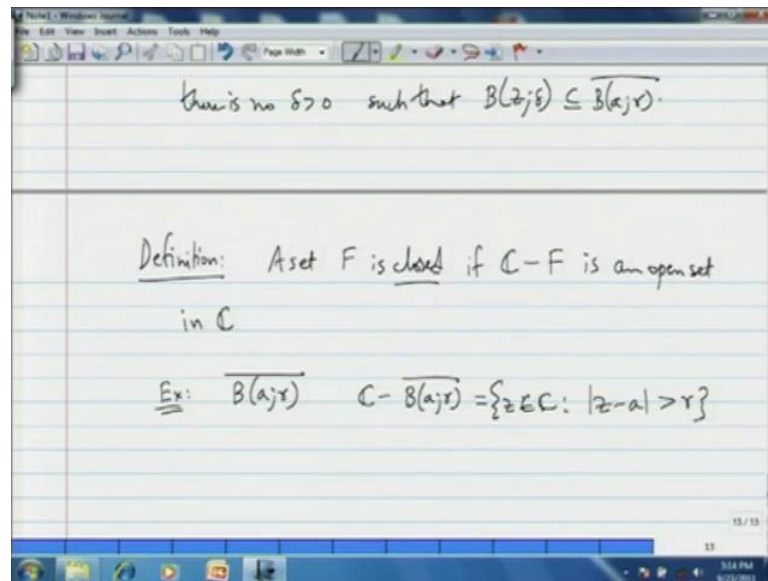 Note1 - Windows Journal
File Edit View Insert Actions Tools Help
Page Width
there is no δ>0 such that B(z;δ) ⊆ \overline{B(a;r)}.
Definition: A set F is closed if ℂ-F is an open set
in ℂ
Ex: \overline{B(a;r)} ℂ-\overline{B(a;r)} = {z∈ℂ: |z-a| > r}
13 / 13
13
5:14 PM
9/23/2011